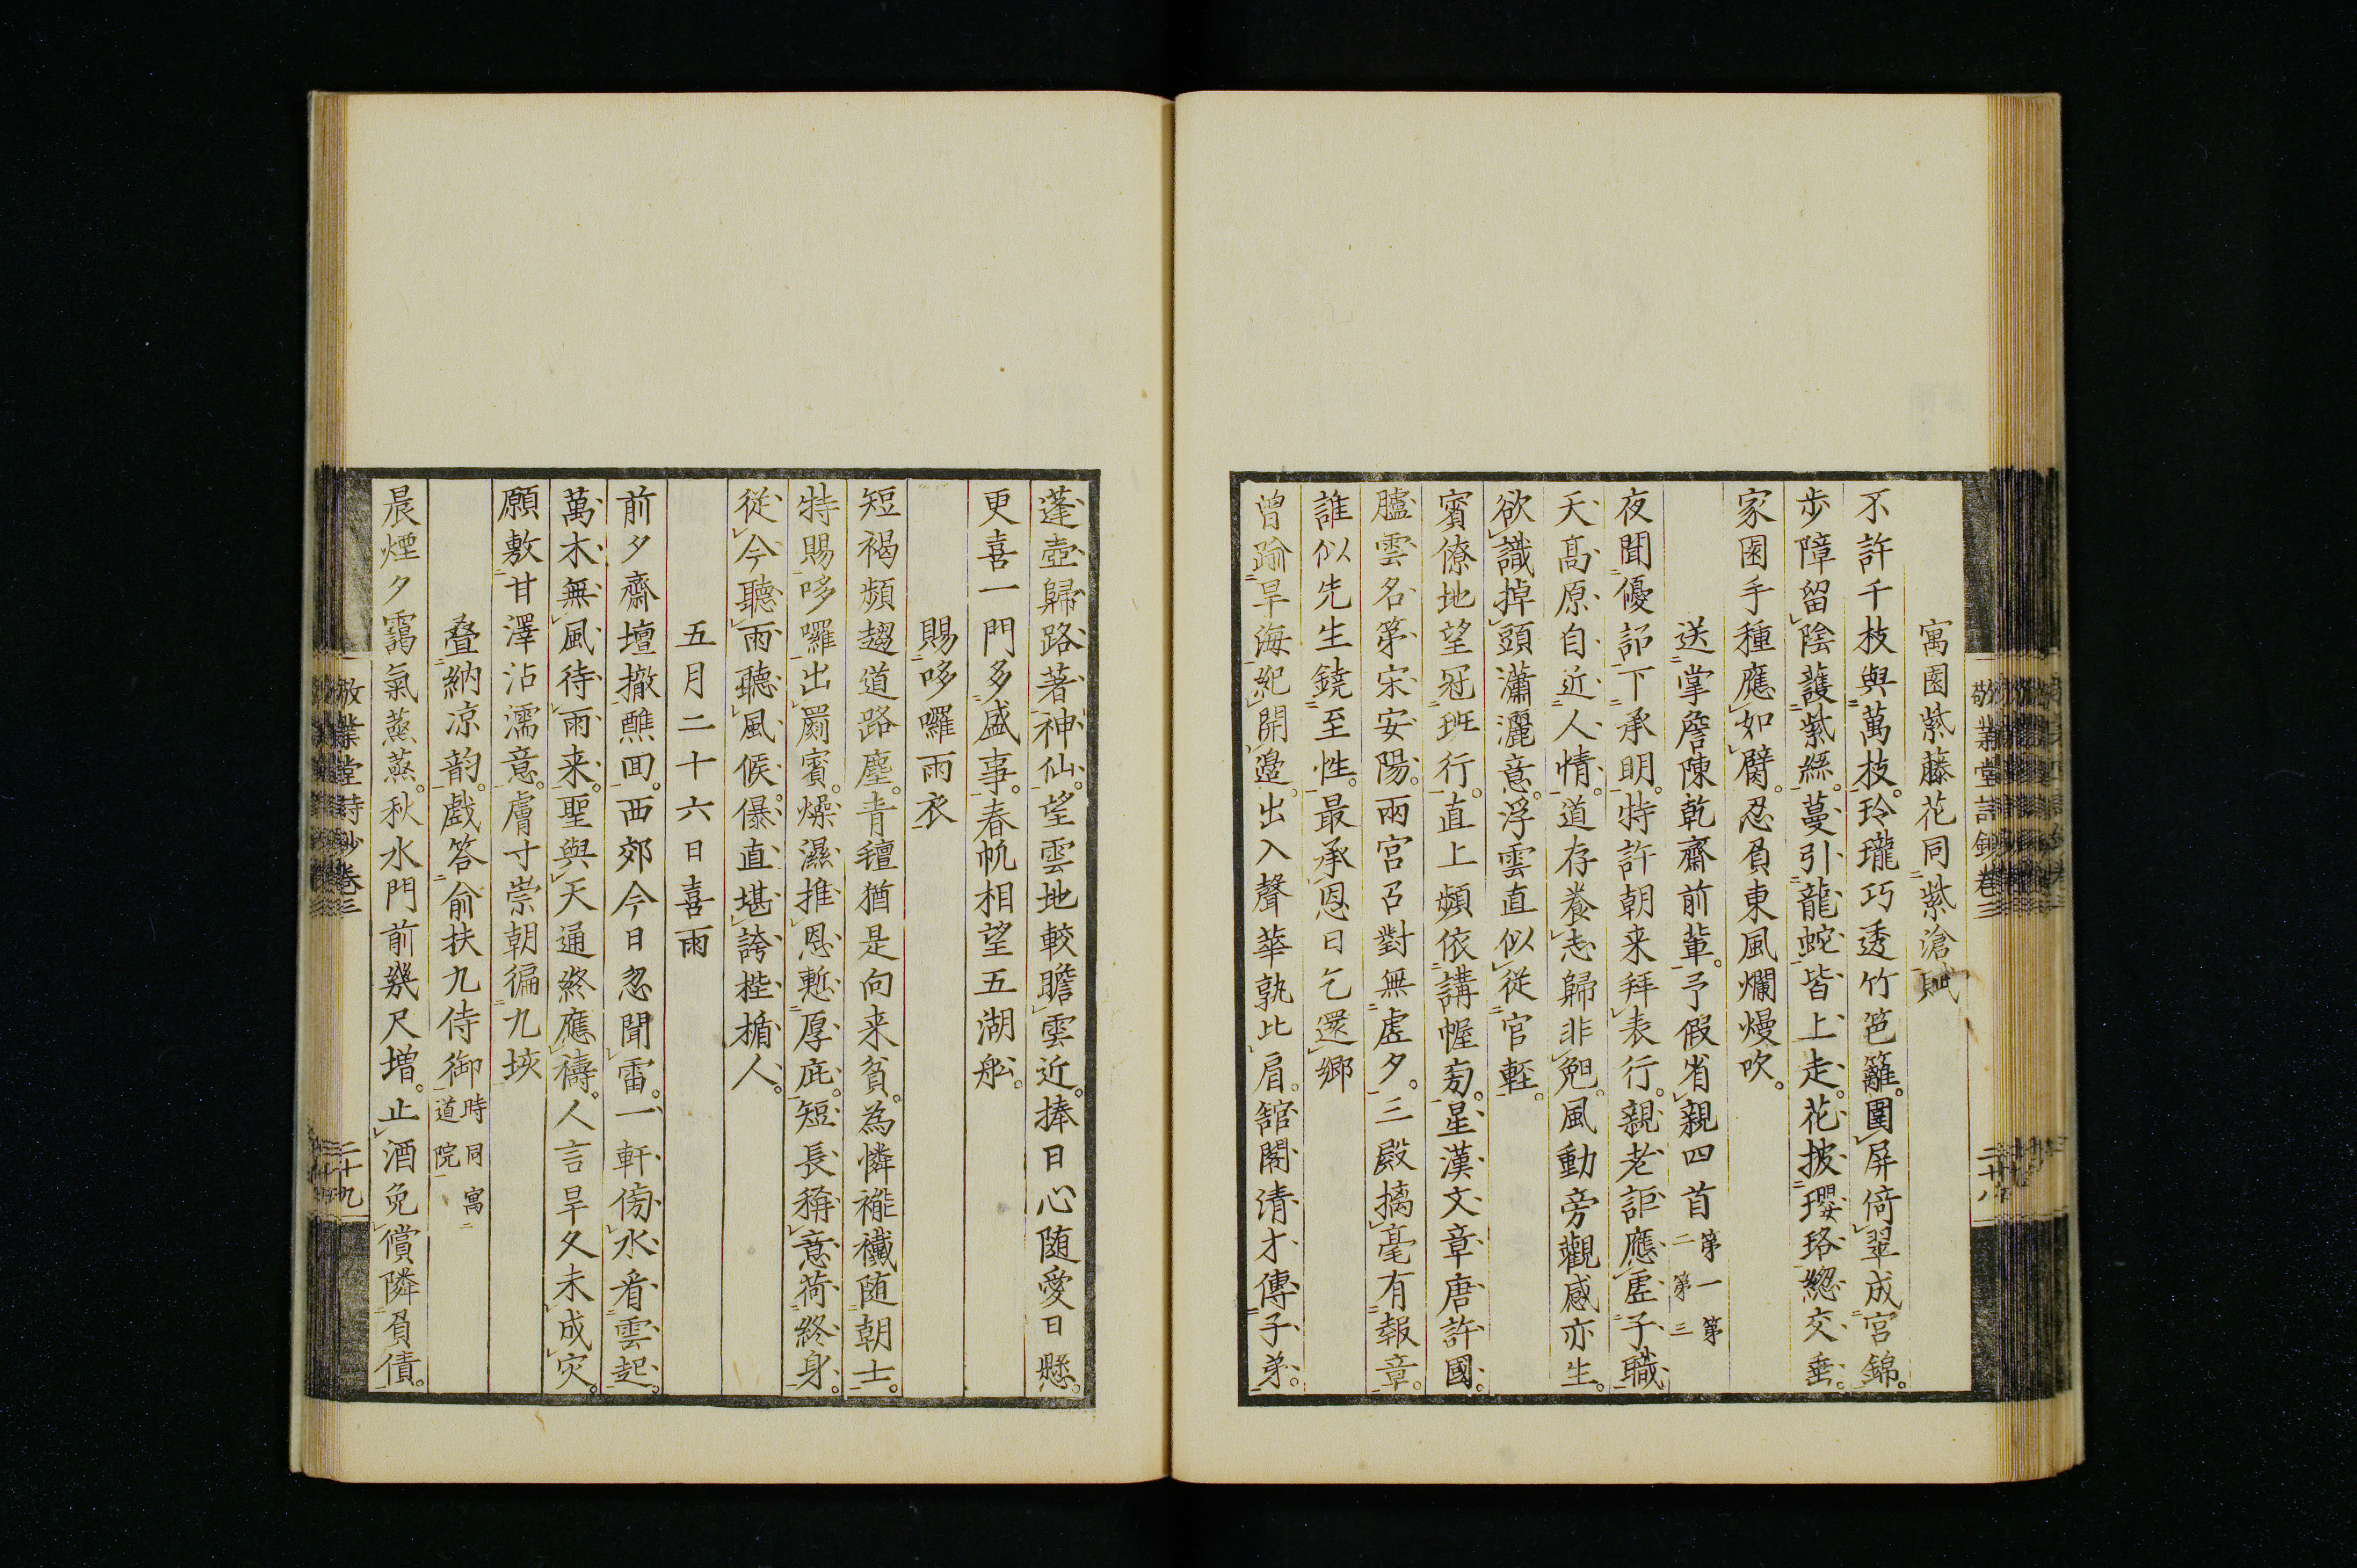 寓園紫藤花同紫滄賦
不許千枝與萬枝。玲瓏巧透竹笆籬。圍屏倚翠成宮錦。
步障留陰護紫絲。蔓引龍蛇皆上走。花披瓔珞緫交垂。
家園手種應如臂。忍負東風爛熳吹。
送掌詹陳乾齋前輩。予假省親四首第一第二第三
夜聞優詔下承明。特許朝来拜表行。親老詎應虛子職
天高原自近人情。道存養志歸非兔。風動旁觀感亦生。
欲識掉頭瀟灑意。浮雲直似從官輕。
賓僚地望冠班行。直上頻依講幄旁。星漢文章唐許國。
臚雲名第宋安陽。兩宮召對無虛夕。三殿摛毫有報章。
誰似先生鐃至性。最承恩日乞還鄉
曾踰旱海紀開邊。出入聲華孰比肩。舘閣清才傳子弟。
蓬壺歸路著神仙。望雲地較瞻雲近。捧日心随愛日懸。
更喜一門多盛事。春帆相望五湖船。
賜哆囉雨衣
短褐頻趨道路塵。青氊猶是向来貧。為憐襏襶随朝士。
特賜哆囉出罽賓。燥濕推恩慙厚庇。短長稱意荷終身。
從今聽雨聽風候。儤直堪誇桎楯人。
五月二十六日喜雨
前夕齋壇撤醮回。西郊今日忽聞雷。一軒傍水看雲起。
萬木無風待雨来。聖與天通終應禱。人言旱久未成灾。
願敷甘澤沾濡意。膚寸崇朝徧九垓
叠納凉韵。戲答俞扶九侍御時同寓道院
晨煙夕靄氣蒸蒸。秋水門前幾尺増。止酒免償隣負債。
敬業堂詩鈔卷三
二十八
敬業堂詩鈔卷三
二十九